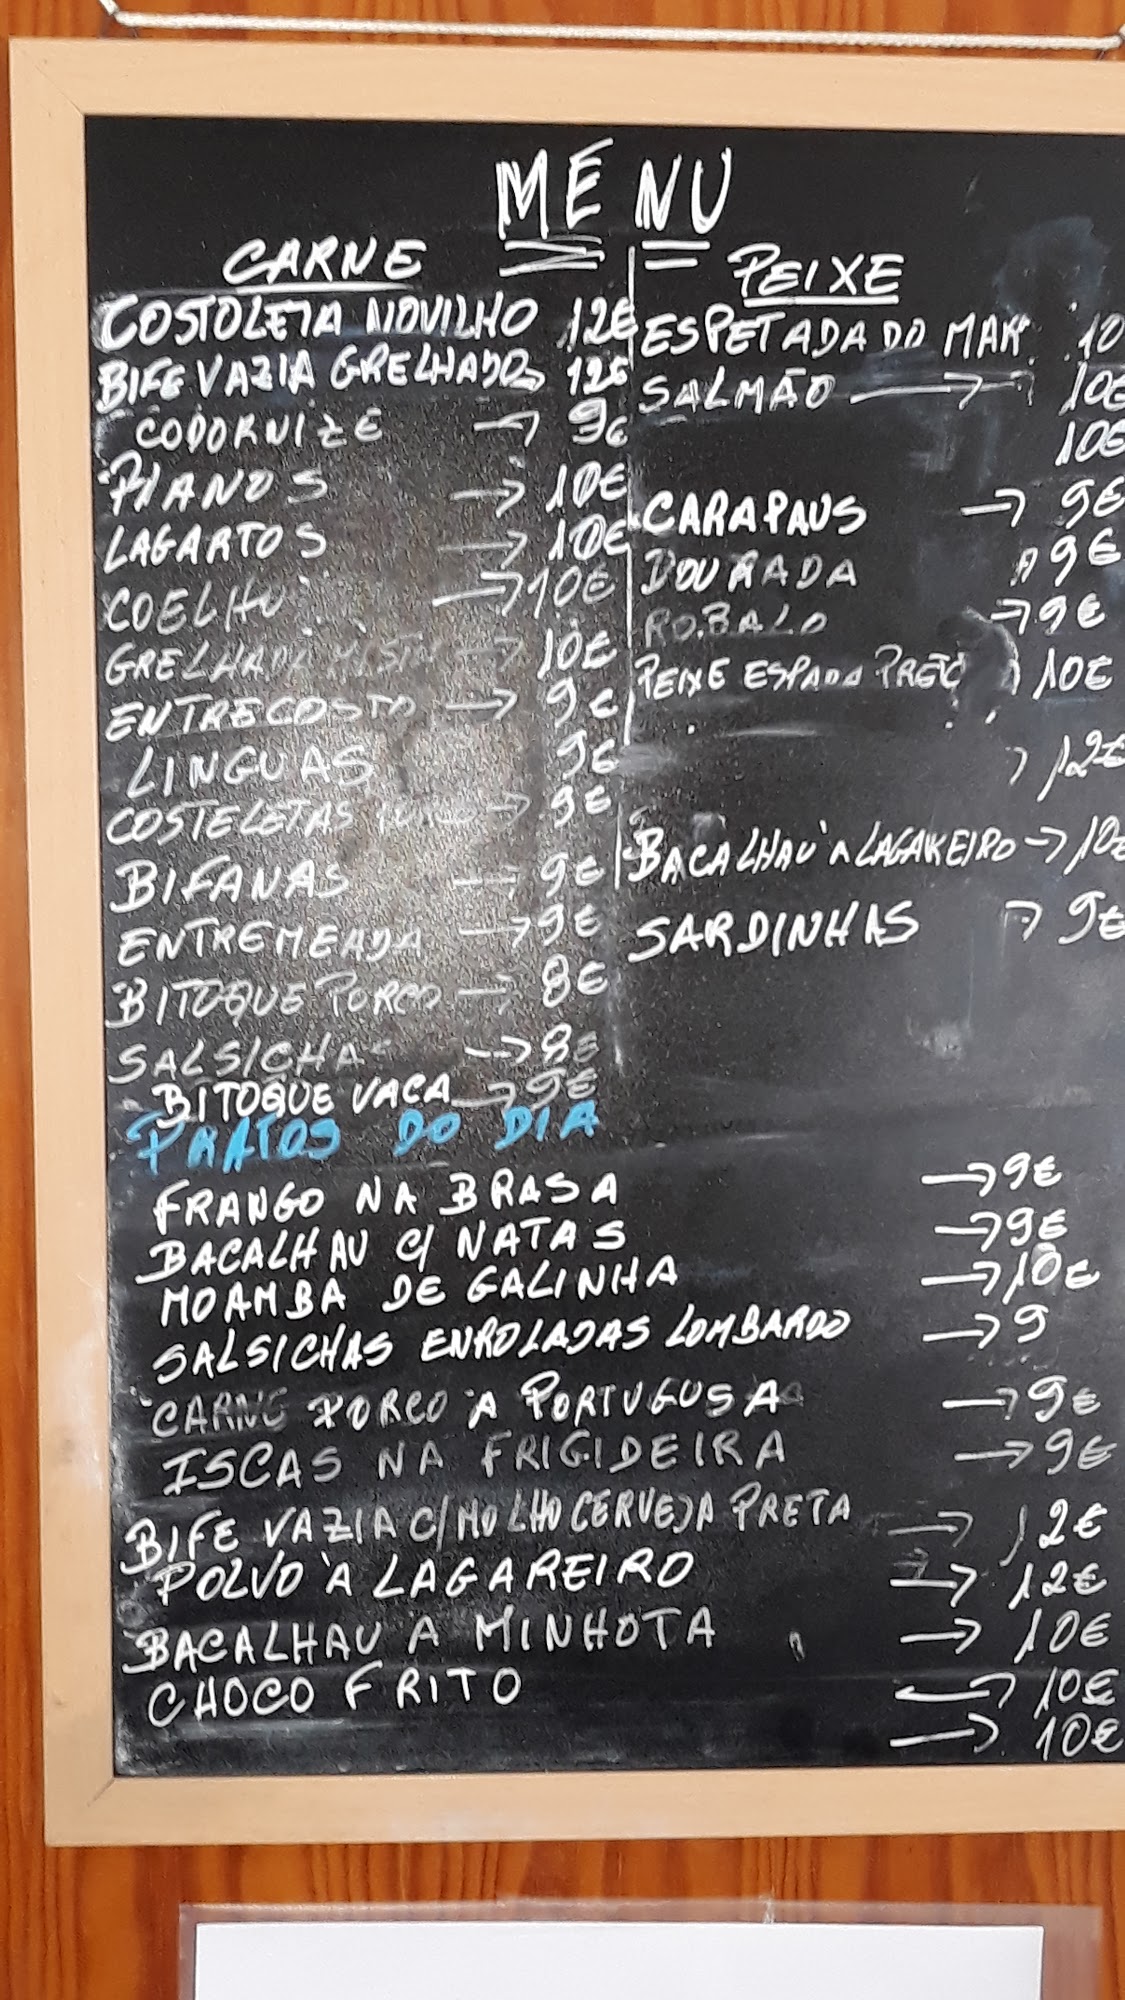 MENU
CARNE
COSTOLETA NOVILHO 12€
BIFE VAZIA GRELHADOS 12€
CODORNIZE → 9€
PIANOS → 10€
LAGARTOS → 10€
COELHO → 10€
GRELHADA MISTA → 10€
ENTRECOSTO → 9€
LINGUAS 9€
COSTELETAS PORCO → 9€
BIFANAS — 9€
ENTREMEADA → 9€
BITOQUE PORCO → 8€
SALSICHAS → 8€
BITOQUE VACA → 9€
PEIXE
ESPETADA DO MAR 10
SALMÃO → 10€
10€
CARAPAUS → 9€
DOURADA 9€
ROBALO → 9€
PEIXE ESPADA PRETO 10€
12€
BACALHAU À LAGAREIRO → 10€
SARDINHAS → 9€
PRATOS DO DIA
FRANGO NA BRASA → 9€
BACALHAU C/ NATAS → 9€
MOAMBA DE GALINHA → 10€
SALSICHAS ENROLADAS LOMBARDO → 9
CARNE PORCO À PORTUGUSA → 9€
ISCAS NA FRIGIDEIRA → 9€
BIFE VAZIA C/MOLHO CERVEJA PRETA → 12€
POLVO À LAGAREIRO → 12€
BACALHAU A MINHOTA → 10€
CHOCO FRITO → 10€
→ 10€